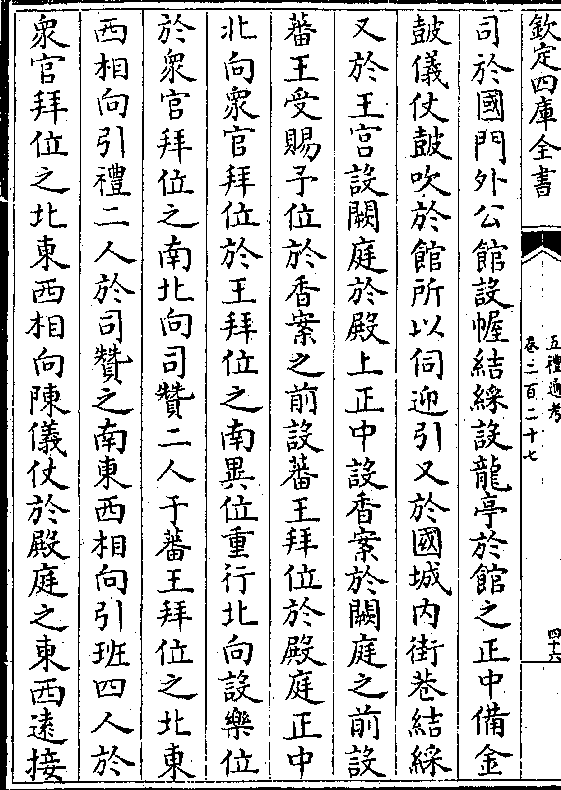 欽定四庫全書
五禮通考
卷二百二十七
四十六
司於國門外公館設幄結綵設龍亭於館之正中備金
鼓儀仗鼓吹於館所以伺迎引又於國城內街巷結綵
又於王宮設闕庭於殿上正中設香案於闕庭之前設
蕃王受賜予位於香案之前設蕃王拜位於殿庭正中
北向衆官拜位於王拜位之南異位重行北向設樂位
於衆官拜位之南北向司贊二人于蕃王拜位之北東
西相向引禮二人於司贊之南東西相向引班四人於
衆官拜位之北東西相向陳儀仗於殿庭之東西遠接